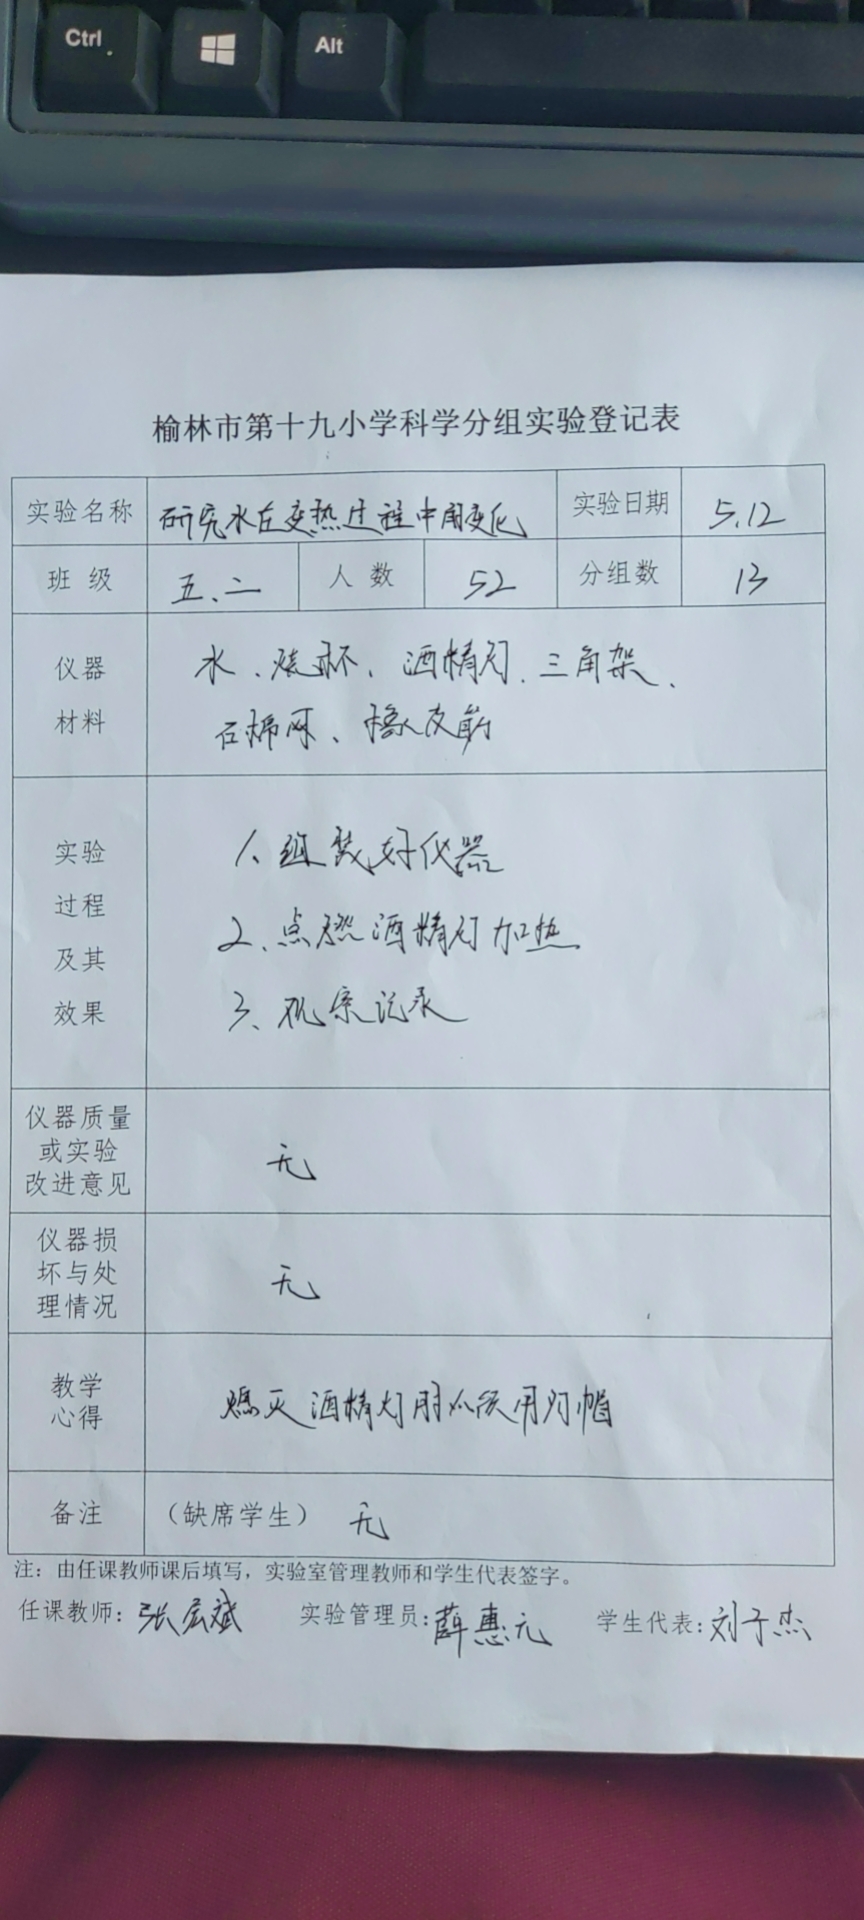 Ctrl
Alt
榆林市第十九小学科学分组实验登记表
实验名称 研究水在变热过程中的变化 实验日期 5.12
班级 五.二 人数 52 分组数 13
仪器材料 水、烧杯、酒精灯、三角架、
石棉网、橡皮筋
实验过程及其效果
1、组装好仪器
2、点燃酒精灯加热
3、观察记录
仪器质量
或实验
改进意见 无
仪器损
坏与处
理情况 无
教学
心得 熄灭酒精灯时必须用灯帽
备注 (缺席学生) 无
注:由任课教师课后填写,实验室管理教师和学生代表签字。
任课教师:张宏斌 实验管理员:薛惠元 学生代表:刘子杰